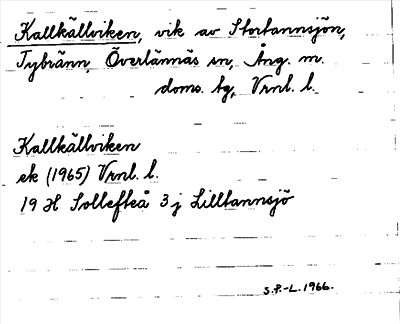 Kallkällviken, vik av Stortannsjön,
Tybränn, Överlännäs sn, Ång. m.
doms. tg, Vrnl. l.
Kallkällviken
ek (1965) Vrnl. l.
19 H Sollefteå 3 j Lilltannsjö
S.P.-L. 1966.